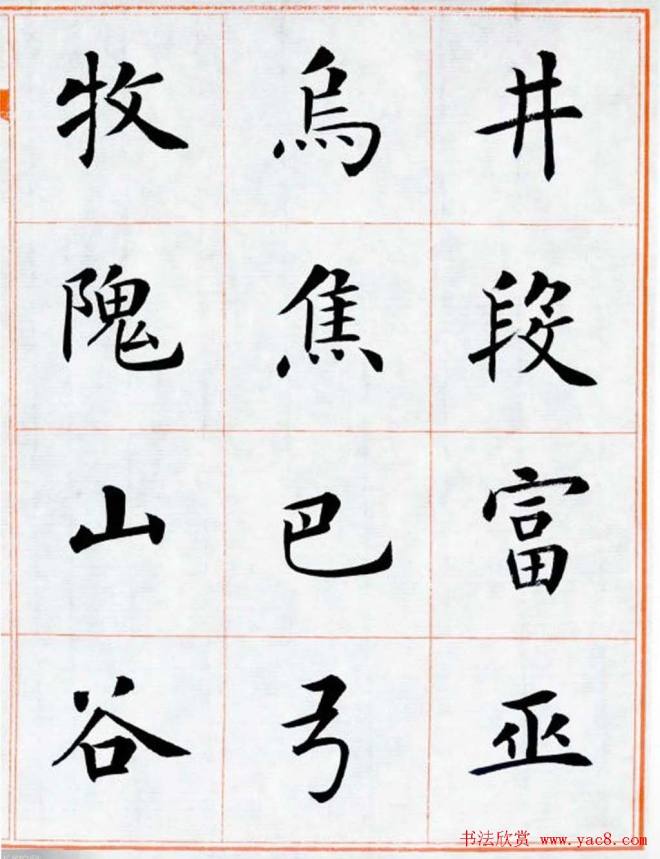 井段富巫
烏焦巴弓
牧隗山谷
书法欣赏 www.yac8.com